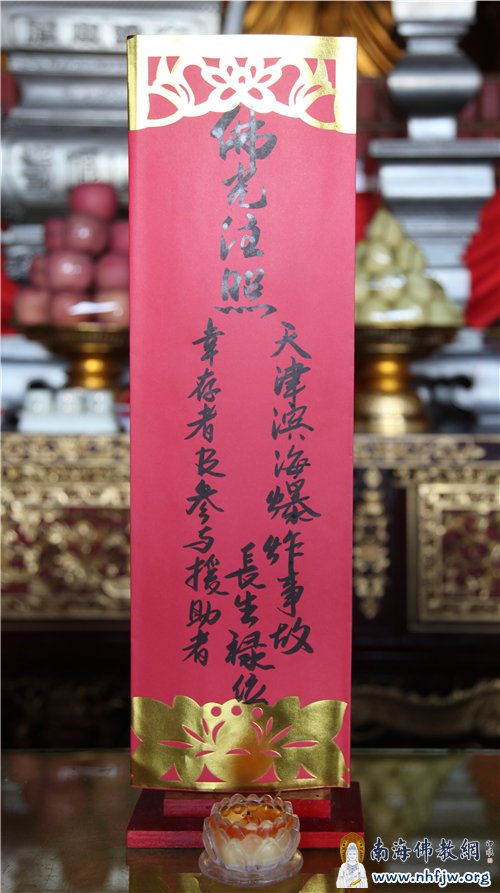 佛光注照
天津滨海爆炸事故
幸存者及參与援助者
長生禄位
南海佛教網
www.nhfjw.org